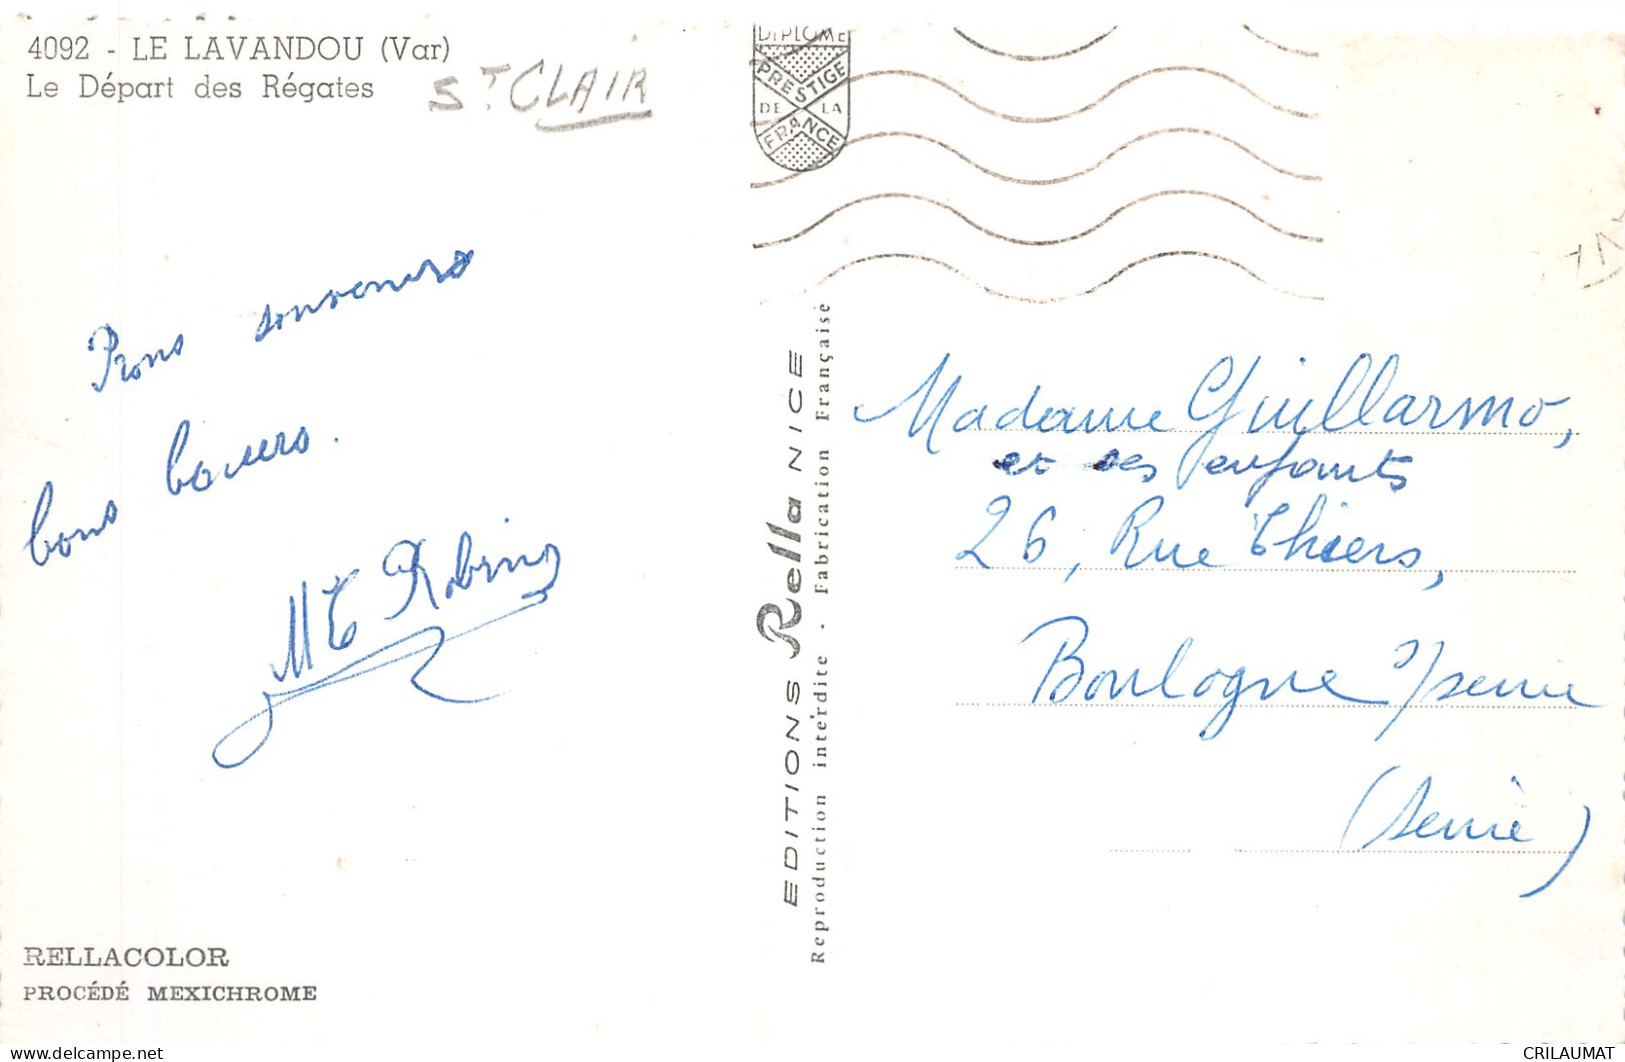 4092 - LE LAVANDOU (Var)
Le Départ des Régates
ST CLAIR
Bons souvenirs
bons baisers.
DIPLOME
PRESTIGE
DE LA
FRANCE
EDITIONS Rella NICE
Reproduction interdite - Fabrication Française
Madame Guillarmo,
et ses enfants
26, Rue Thiers,
Boulogne s/seine
(Seine)
RELLACOLOR
PROCÉDÉ MEXICHROME
delcampe.net
CRILAUMAT